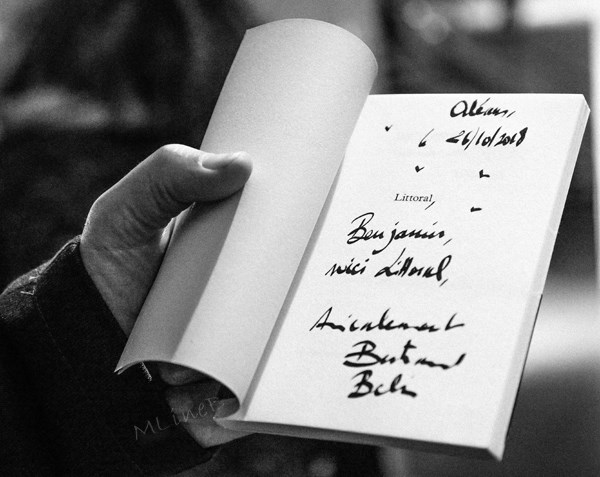 Oléron,
26/10/2018
Littoral,
Benjamin,
voici Littoral,
Amicalement
Bertrand
Belin
MLineF